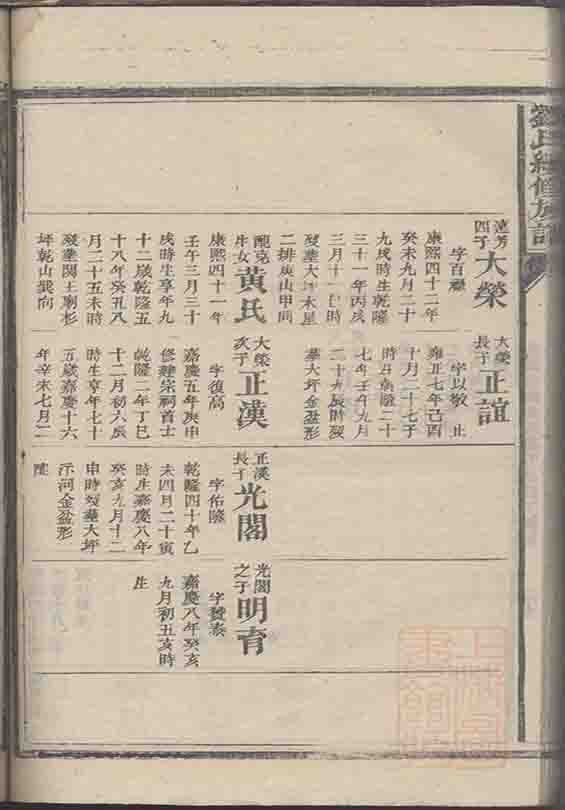 劉氏續修族譜
達芳
四子
大榮
字百祿
康熙四十二年
癸未九月二十
九戌時生乾隆
三十一年丙戌
二排庚山甲向
醜克
牛女
黃氏
康熙四十一年
壬午三月三十
戌時生享年九
十二歲乾隆五
十八年癸丑八
月二十五未時
歿葬閣王刷杉
坪乾山巽向
大榮
長子
正誼
字以敬 止
雍正七年己酉
十月二十七子
時生乾隆二十
七年壬午九月
二十九辰時歿
葬大坪金盆形
大榮
次子
正漢
字復高
嘉慶五年庚申
修建宗祠首士
乾隆二年丁巳
十二月初六辰
時生享年七十
五歲嘉慶十六
年辛未七月二
正漢
長子
光閣
字佑隆
乾隆四十年乙
未四月二十寅
時生嘉慶八年
癸亥九月十二
申時歿葬大坪
示河金盆形
光閣
之子
明育
字贊泰
嘉慶八年癸亥
九月初五亥時
生
上海圖書館藏